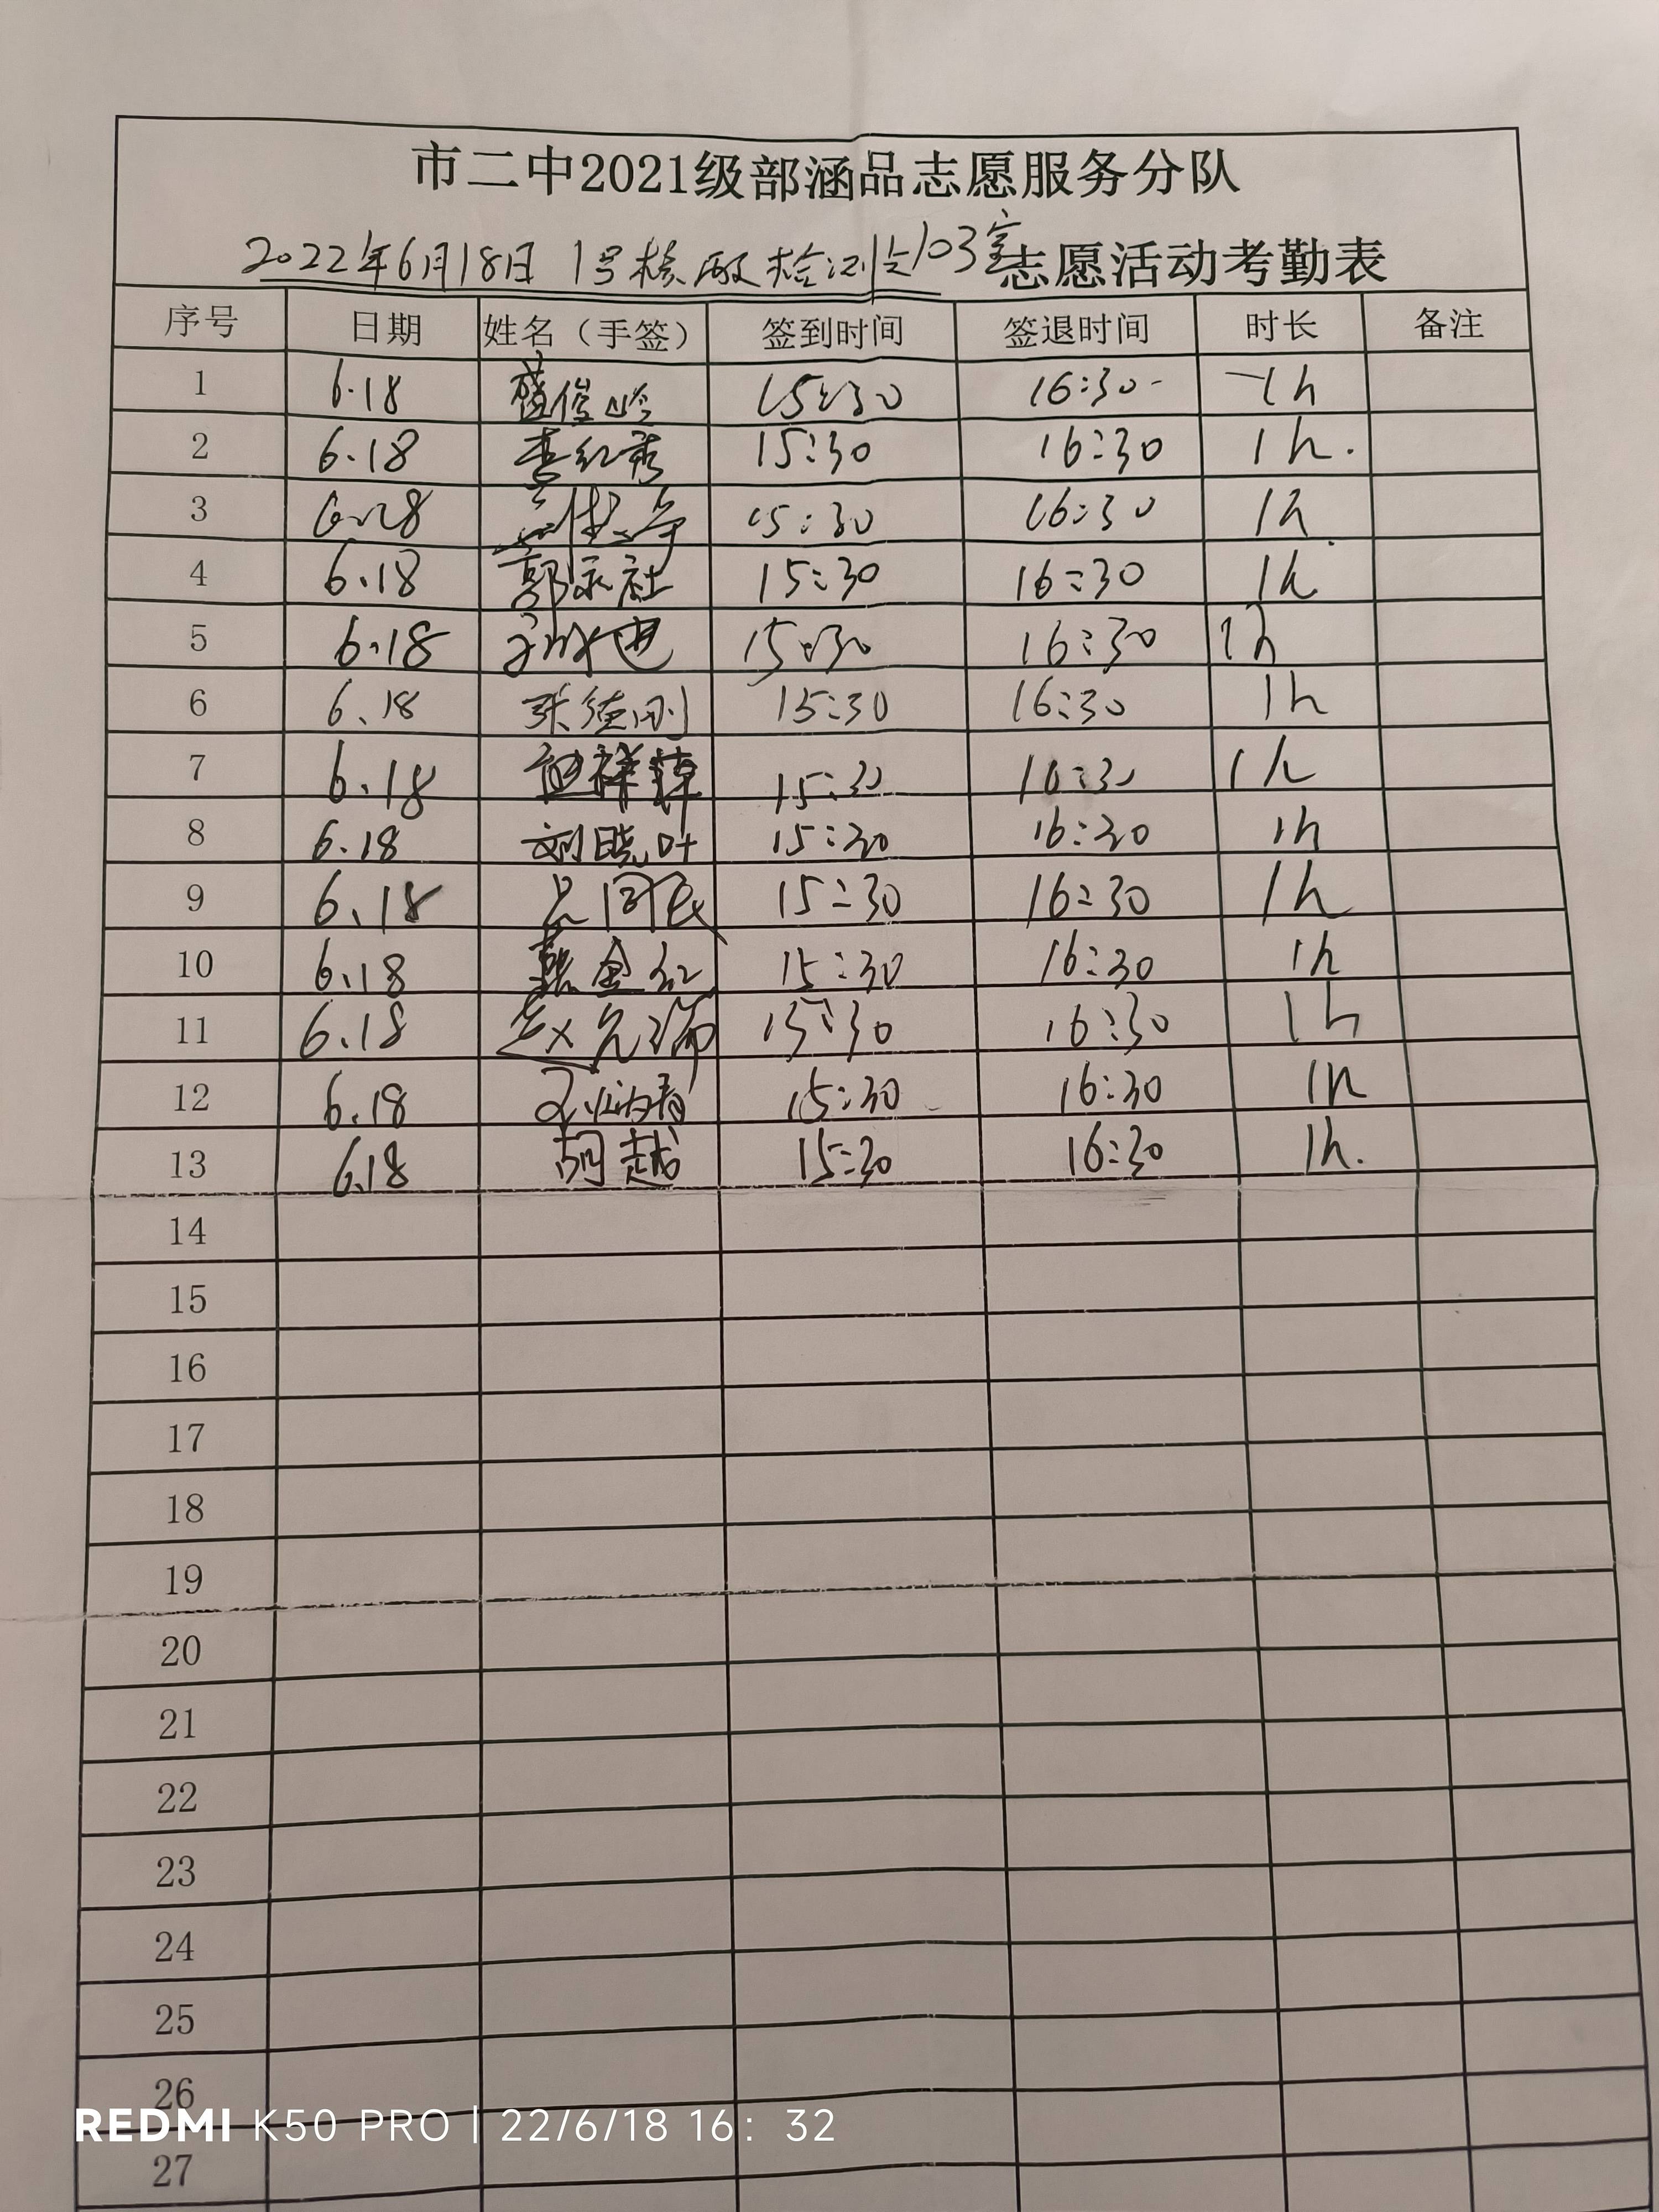 市二中2021级部涵品志愿服务分队
2022年6月18日 1号核酸检测点103室志愿活动考勤表
序号 日期 姓名（手签） 签到时间 签退时间 时长 备注
1 6.18 俊岭 15:30 16:30 1h
2 6.18 李红秀 15:30 16:30 1h.
3 6.18 15:30 16:30 1h
4 6.18 郭永社 15:30 16:30 1h
5 6.18 15:30 16:30 1h
6 6.18 张德刚 15:30 16:30 1h
7 6.18 祥 15:30 16:30 1h
8 6.18 刘晓叶 15:30 16:30 1h
9 6.18 15:30 16:30 1h
10 6.18 金红 15:30 16:30 1h
11 6.18 赵允瑞 15:30 16:30 1h
12 6.18 15:30 16:30 1h
13 6.18 胡越 15:30 16:30 1h.
14
15
16
17
18
19
20
21
22
23
24
25
26
REDMI K50 PRO | 22/6/18 16:32
27